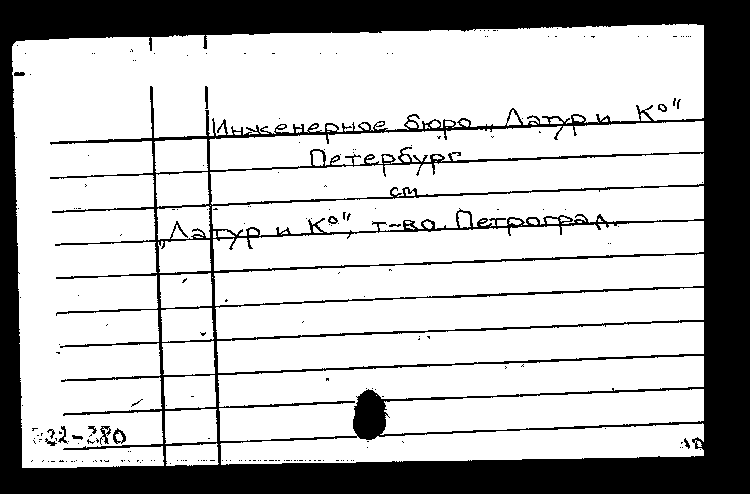 Инженерное бюро „Латур и К°"
Петербург
см
„Латур и К°", т-во. Петроград.